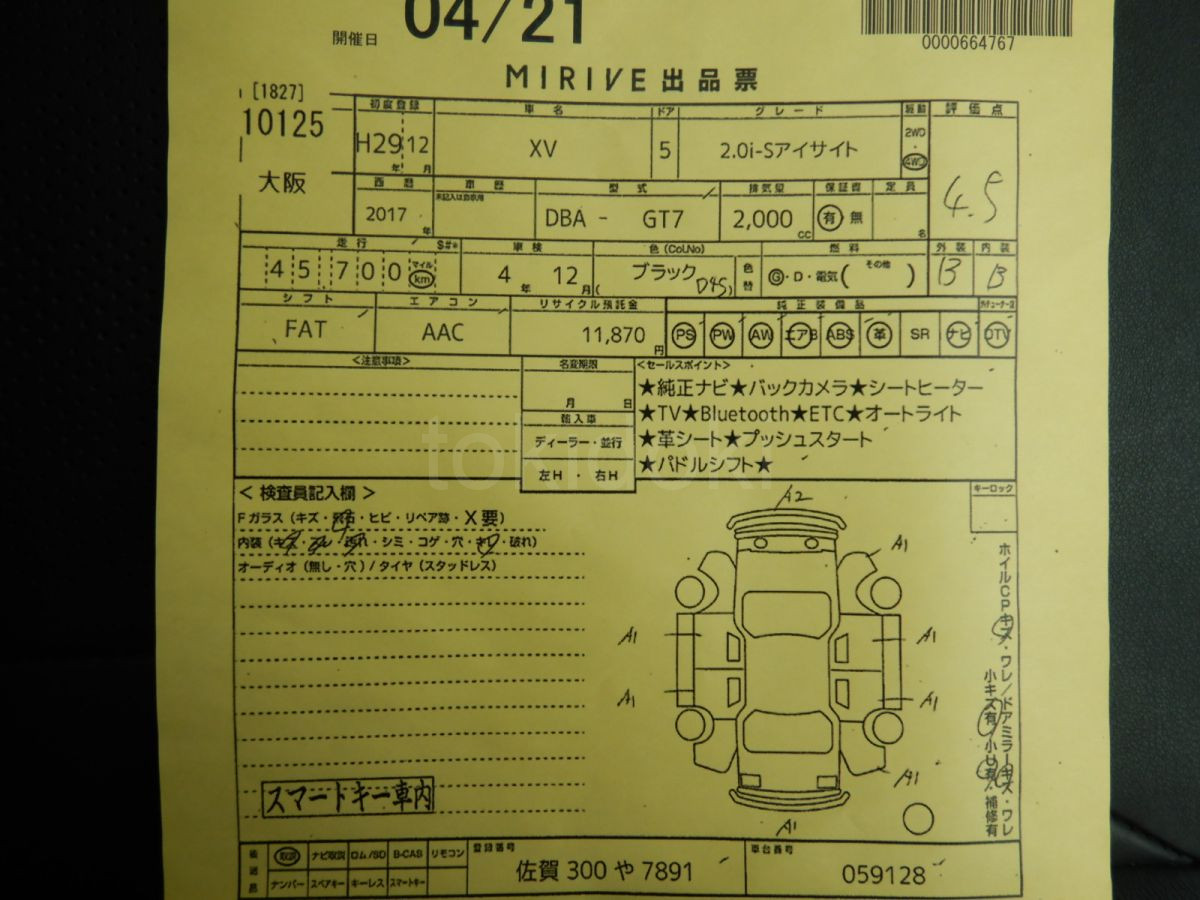 開催日 04/21
0000664767
MIRIVE出品票
[1827]
10125
大阪
初度登録 車名 ドア グレード 駆動 評価点
H29 12 XV 5 2.0i-Sアイサイト 2WD・4WD
年 月
4.5
西暦 車歴 型式 排気量 保証書 定員
未記入は自家用
2017 DBA - GT7 2,000 有・無
年 cc 名
走行 $#* 車検 色(Col.No) 燃料 外装 内装
45,700 マイル km 4年 12月 ブラック (D4S) 色替 G・D・電気( その他 ) B B
シフト エアコン リサイクル預託金 純正装備品
FAT AAC 11,870円 PS PW AW エアB ABS 革 SR ナビ DTV
<注意事項> 名変期限 <セールスポイント>
月 日
★純正ナビ★バックカメラ★シートヒーター
輸入車
★TV★Bluetooth★ETC★オートライト
ディーラー・並行
★革シート★プッシュスタート
左H・右H
★パドルシフト★
tokidoki
<検査員記入欄>
キーロック
Fガラス(キズ・飛石・ヒビ・リペア跡・X要)
内装(キズ・スレ・汚れ・シミ・コゲ・穴・キリ・破れ)
オーディオ(無し・穴)/タイヤ(スタッドレス)
A2
A1
A1 A1
A1 A1
A1
A1
ホイルCPキズ・ワレ/ドアミラーキズ・ワレ
小キズ有・小凹有・補修有
スマートキー車内
後送品 取説 ナビ取説 ロム/SD B-CAS リモコン 登録番号 車台番号
ナンバー スペアキー キーレス スマートキー 佐賀 300 や 7891 059128